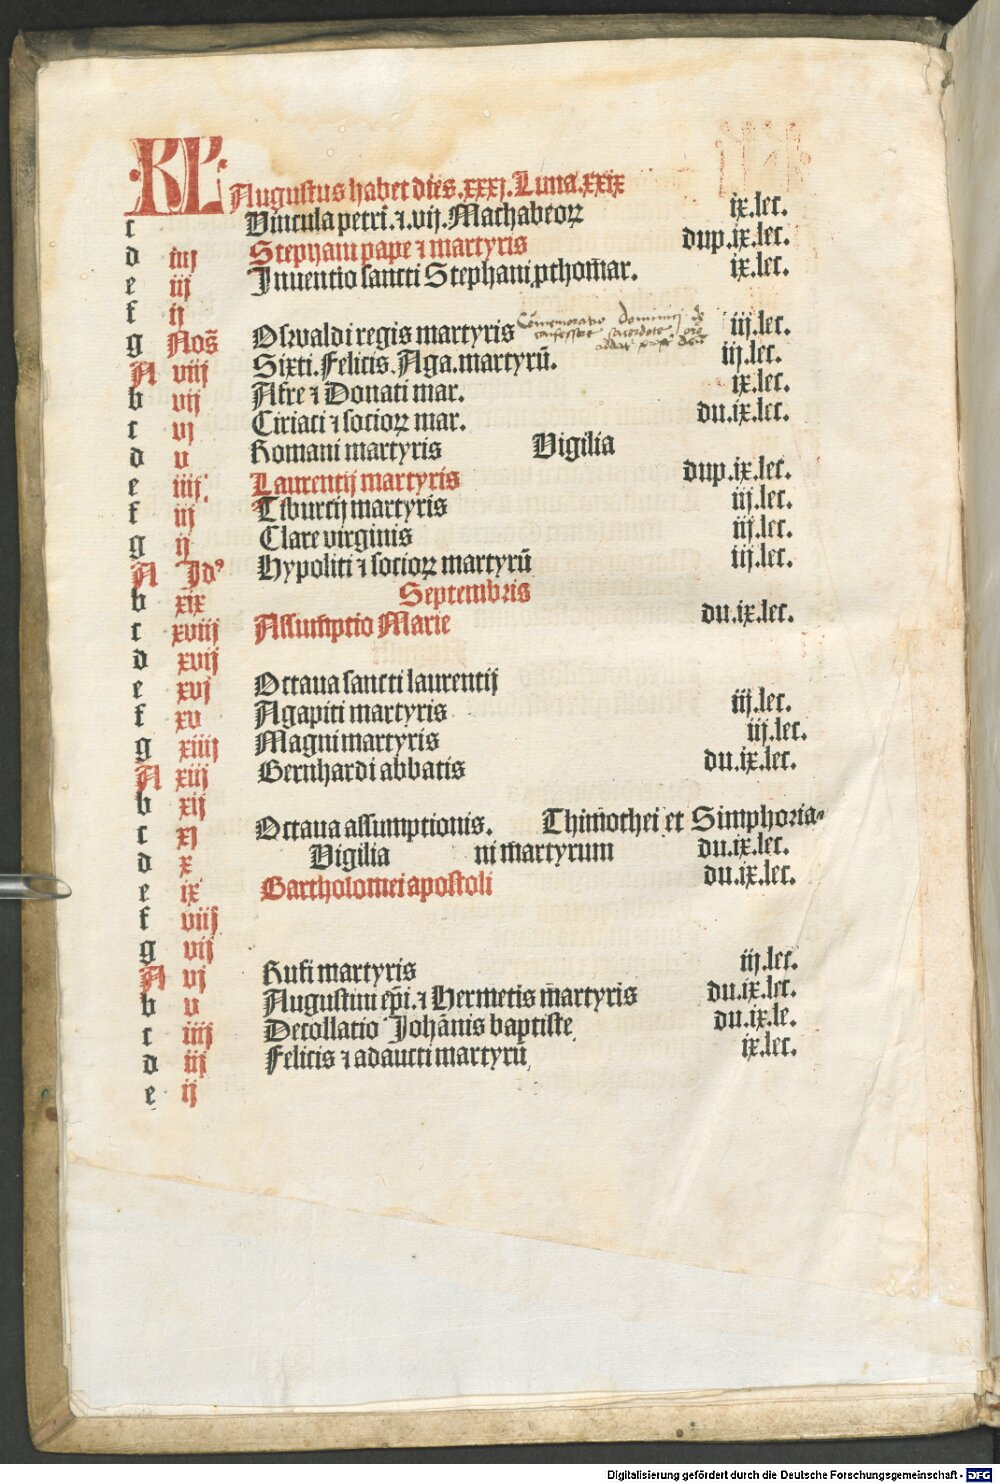 KL
Augustus habet dies .xxxj. Luna .xxix
c Vincula petri .⁊ .vij. Machabeoꝝ ix.lec.
d iiij Stephani pape ⁊ martyris dup.ix.lec.
e iij Inuentio sancti Stephani ꝓthom̄ar. ix.lec.
f ij
g Nos̄ Oswaldi regis martyris iij.lec.
Com̄emoratio dominici
confessoris sacerdote
A viij Sixti. Felicis. Aga. martyrū. iij.lec.
b vij Afre ⁊ Donati mar. ix.lec.
c vj Ciriaci ⁊ socioꝝ mar. du.ix.lec.
d v Romani martyris Vigilia
e iiij Laurentij martyris dup.ix.lec.
f iij Tiburcij martyris iij.lec.
g ij Clare virginis iij.lec.
A Idꝰ Hypoliti ⁊ socioꝝ martyrū iij.lec.
b xix Septembris
c xviij Assumptio Marie du.ix.lec.
d xvij
e xvj Octaua sancti laurentij
f xv Agapiti martyris iij.lec.
g xiiij Magni martyris iij.lec.
A xiij Bernhardi abbatis du.ix.lec.
b xij
c xj Octaua assumptionis. Thimothei et Simphoria-
d x Vigilia ni m̄artyrum du.ix.lec.
e ix Bartholomei apostoli du.ix.lec.
f viij
g vij
A vj Rufi martyris iij.lec.
b v Augustini ep̄i. ⁊ Hermetis m̄artyris du.ix.lec.
c iiij Decollatio Johānis baptiste du.ix.le.
d iij Felicis ⁊ adaucti martyrū ix.lec.
e ij
Digitalisierung gefördert durch die Deutsche Forschungsgemeinschaft - DFG